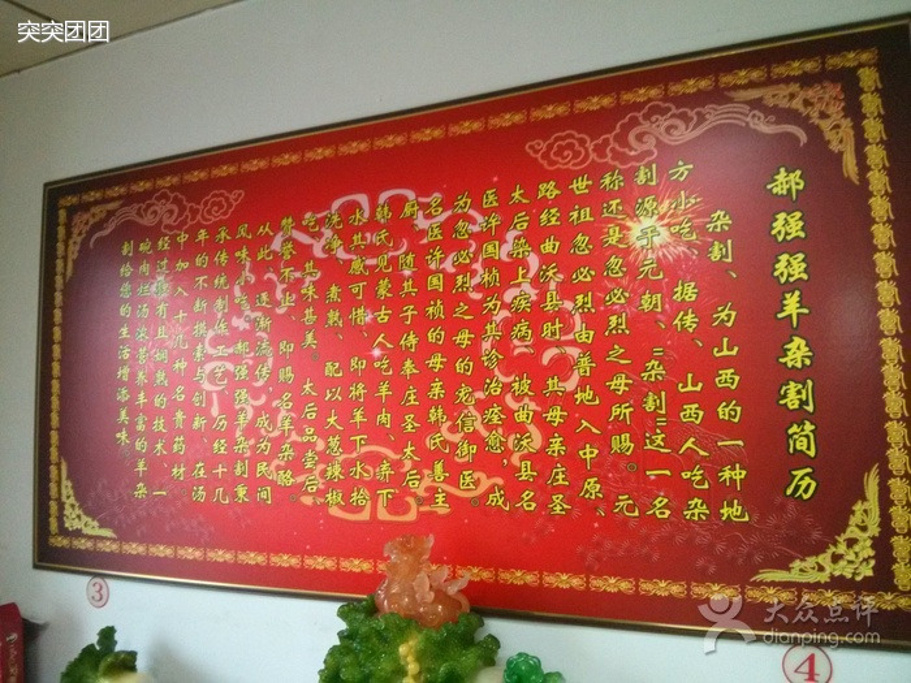 突突团团
郝强强羊杂割简历
杂割、为山西的一种地
方小吃，据传、山西人吃杂
割源于元朝、"杂割"这一名
称还是忽必烈之母所赐。元
世祖忽必烈由普地入中原、
路经曲沃县时、其母亲庄圣
太后染上疾病、被曲沃县名
医许国桢为其诊治痊愈。成
为忽必烈之母的宠信御医。
名医许国祯的母亲韩氏善主
厨，随其子侍奉庄圣太后。
韩氏见蒙古人吃羊肉、弃下
水其感可惜、即将羊下水拾
洗净、煮熟、配以大葱辣椒
吃、其味甚美。太后品尝后、
赞誉不止、即赐名羊杂酪。
从此、逐渐流传、成为民间
风味小吃。郝强强羊杂割秉
承传统制作工艺、历经十几
年的不断摸索与创新、在汤
中加入十几种名贵药材。
经过独有且娴熟的技术、一
碗肉烂汤浓营养丰富的羊杂
割给您的生活增添美味。
③
④
大众点评
dianping.com